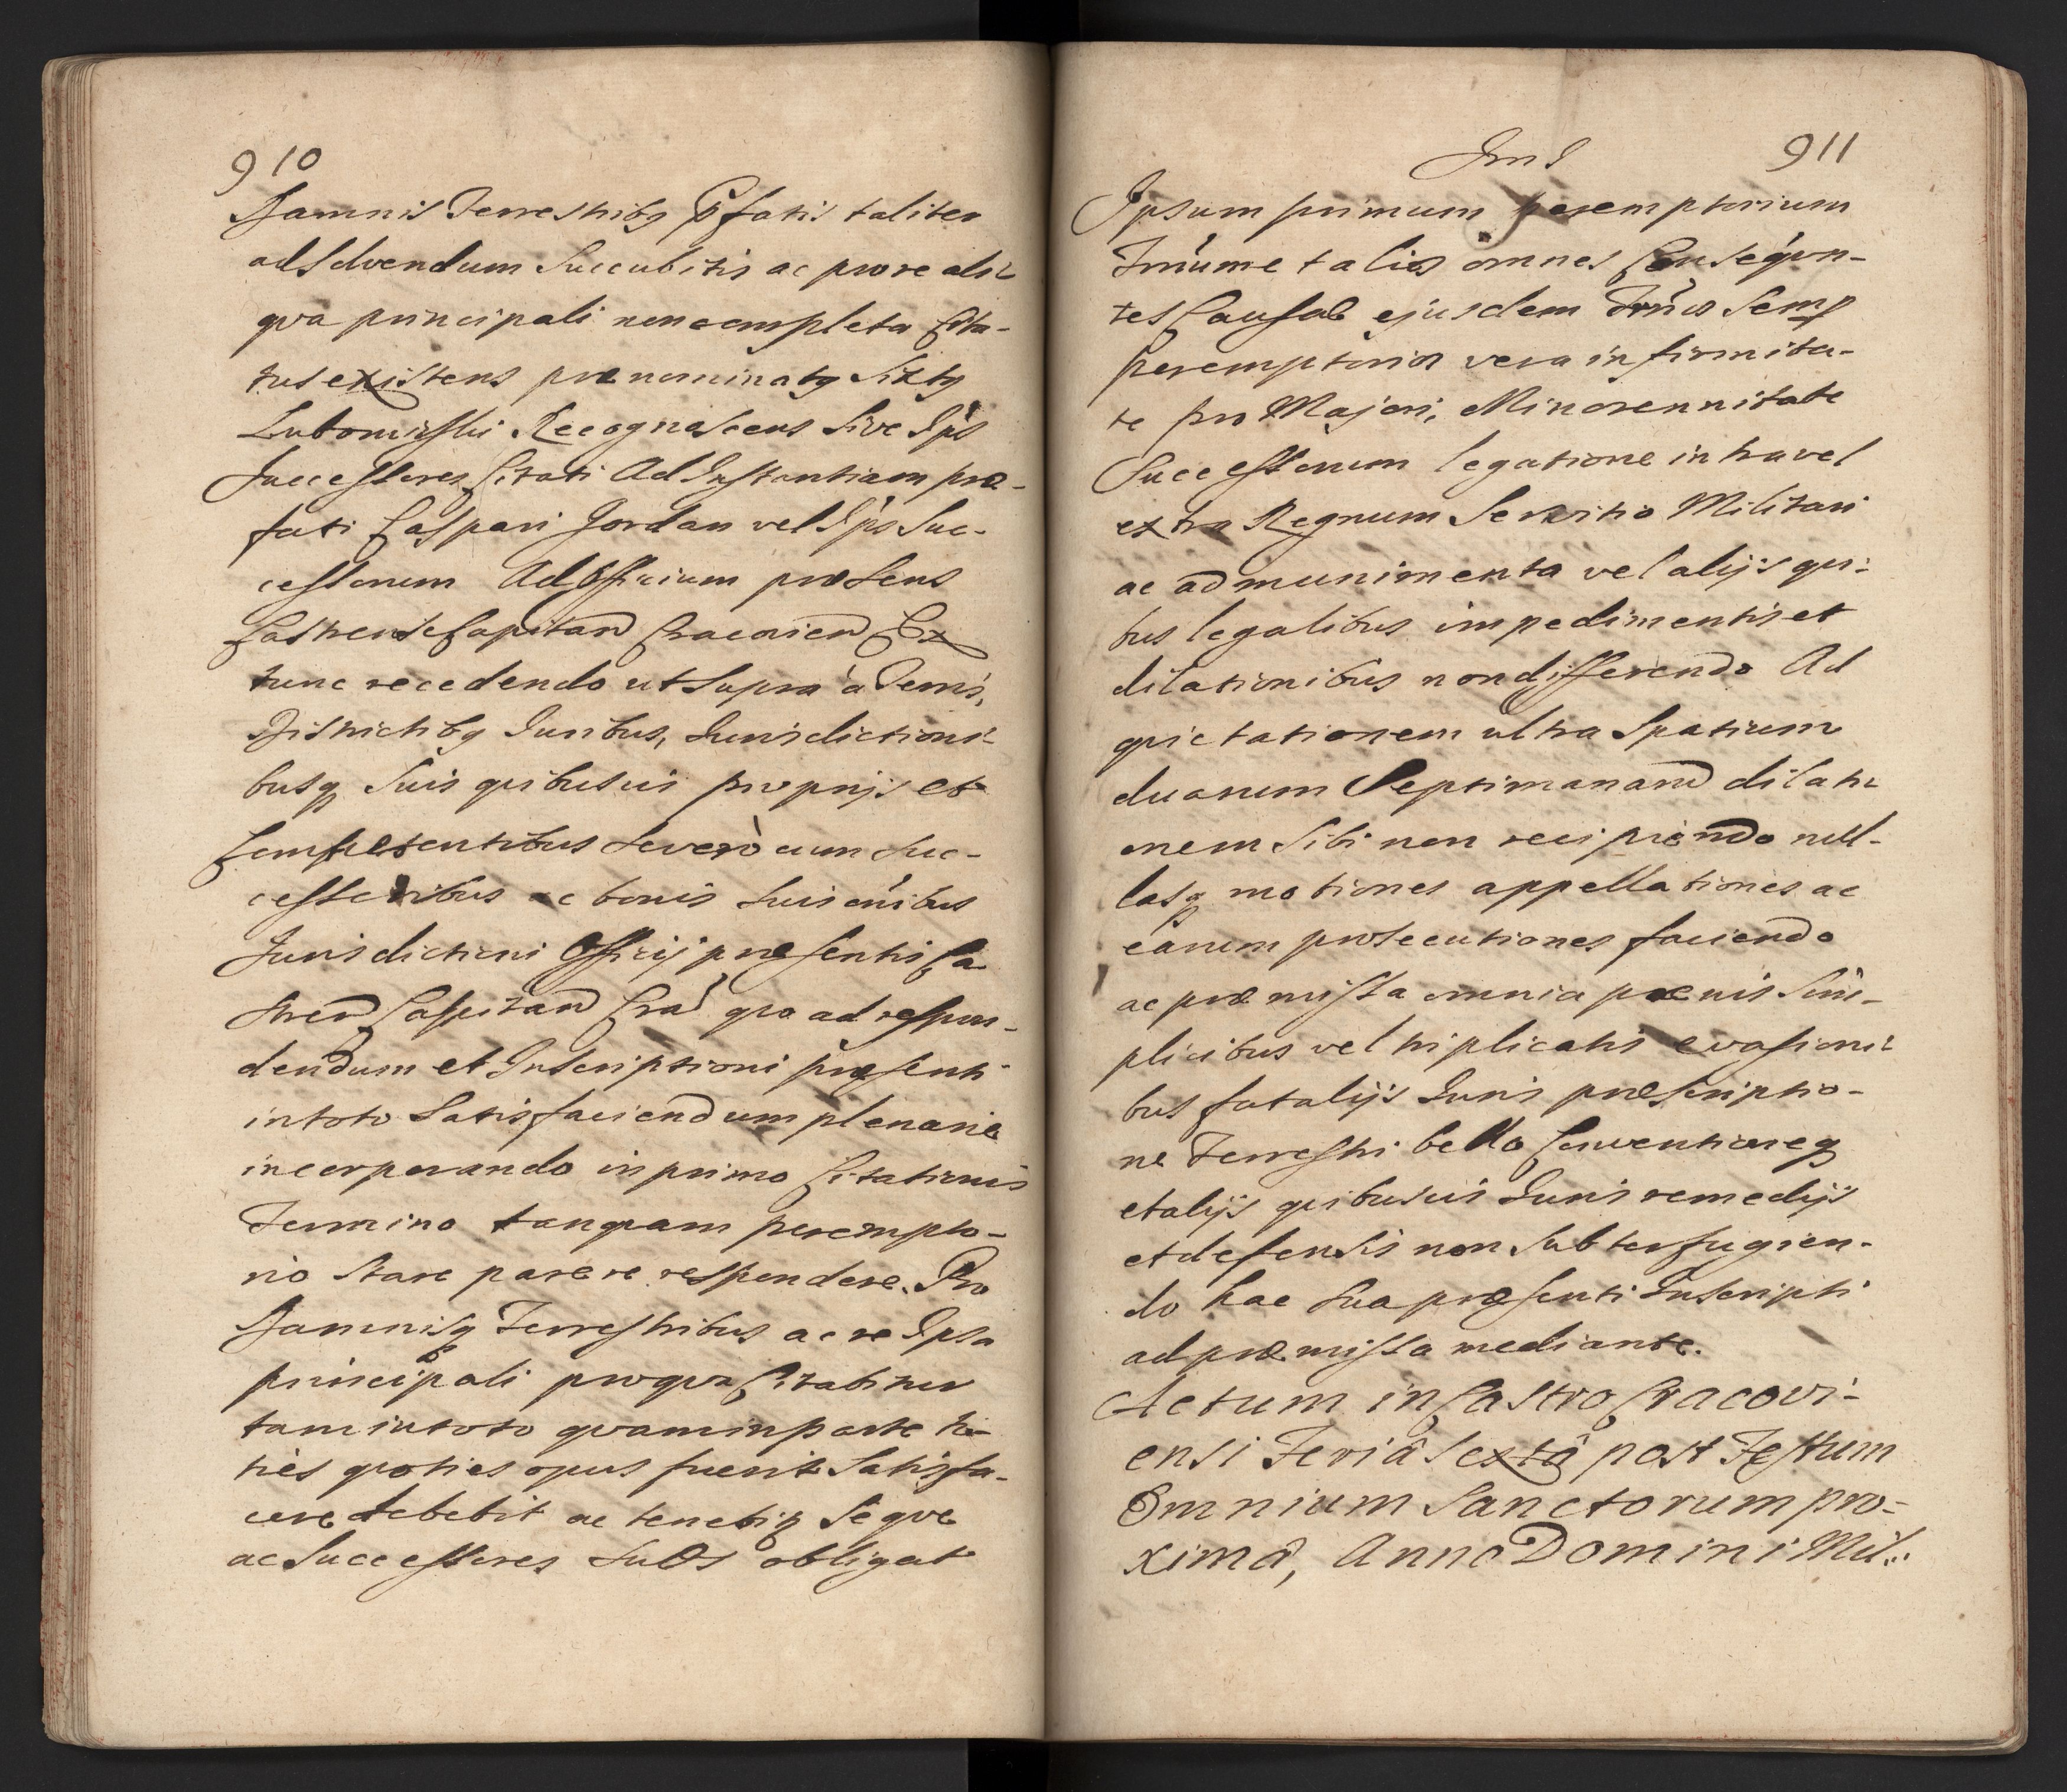 910
Damnis Terrestribg Pfatis taliter
ad Solvendum Succubitis ac pro re ali-
qva principali non completa Cita-
tus existens prænominatg Sixtg
Lubomirski Recognoscens Sive Ips
Successores Citati Ad Instantiam præ-
fati Caspari Jordan vel Ips Suc-
cessorum Ad Officium præsens
Castrense Capitan Cracovien Ex
tunc recedendo ut supra à Terris,
Districtibg Juribus, Jurisdictioni-
busq Suis quibusvis proprijs et
Competentibus Severò cum Suc-
cessoribus ac bonis Suis oníbus
Jurisdictioni Officij præsentis Ca
stren Capitan Cra qvo ad respon-
dendum et Inscriptioni præsenti
in toto Satisfaciendum plenarie
incorporando in primo Citationis
Termino tanqvam perempto-
rio Stare parere respondere. Pro
Damnisq Terrestribus ac re Ipsa
principali pro qva Citabitur
tam in toto qvam in parte to-
tiès qvoties opus fuerit Satisfa-
cere debebit ac tenebir Seqve
ac Successores Suos obligat
Jms 911
Ipsum primum peremptorium
Trmúm et alios omnes Conseqvn-
tes Causæ ejusdem Trmós Semp
peremptorios vera infirmita-
te pro Majori, Minorennitate
Successorum legatione intra vel
extra Regnum Servitio Militari
ac ad munimenta vel alijs qvi-
bus legalibus impedimentis et
dilationibus non differendo Ad
qvietationem ultra Spatium
duarum Septimanarum dilati-
onem Sibi non recipiendo nul-
lasq motiones appellationes ac
earum prosecutiones faciendo
ac præmissa omnia pænis Sim-
plicibus vel triplicatis evasioni-
bus fatalijs Juris præscriptio-
ne Terrestri bello Conventioneq
et alijs qvibusvis Juris remedijs
et defensis non Subterfugien-
do hac Sua præsenti Inscripti
ad præmissa mediante.
Actum in Castro Cracovi-
ensi Feriâ Sextâ post Festum
Omnium Sanctorum pro-
ximâ, Anno Domini Mil..